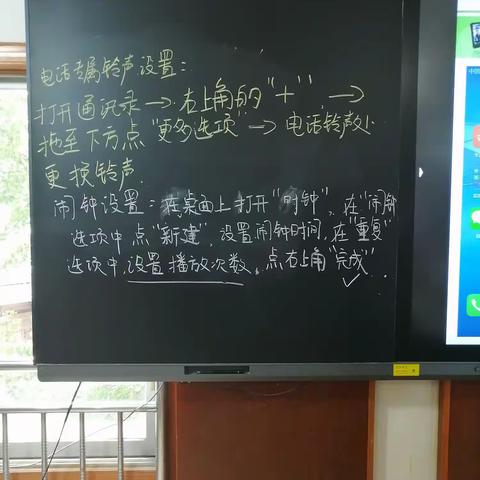 电话专属铃声设置：
打开通讯录→右上角的"+"→
拖至下方点"更多选项"→电话铃声处
更换铃声.
闹钟设置：在桌面上打开"时钟"，在"闹钟
选项中点"新建"，设置闹钟时间，在"重复"
选项中,设置播放次数，点右上角"完成"